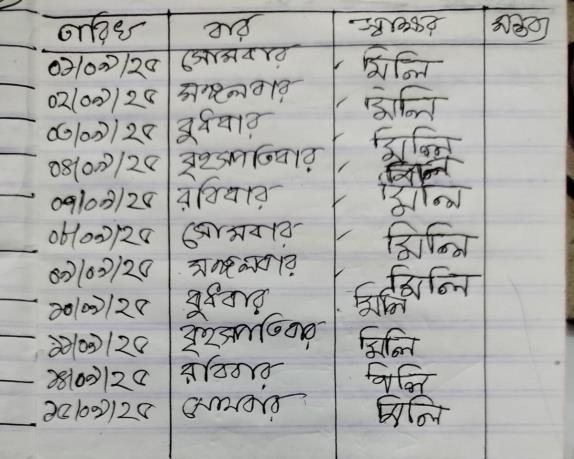 তারিখ বার স্বাক্ষর মন্তব্য
০১/০৯/২৫ সোমবার মিলি
০২/০৯/২৫ মঙ্গলবার মিলি
০৩/০৯/২৫ বুধবার মিলি
০৪/০৯/২৫ বৃহস্পতিবার মিলি
০৭/০৯/২৫ রবিবার মিলি
০৮/০৯/২৫ সোমবার মিলি
০৯/০৯/২৫ মঙ্গলবার মিলি
১০/০৯/২৫ বুধবার মিলি
১১/০৯/২৫ বৃহস্পতিবার মিলি
১৪/০৯/২৫ রবিবার মিলি
১৫/০৯/২৫ সোমবার মিলি